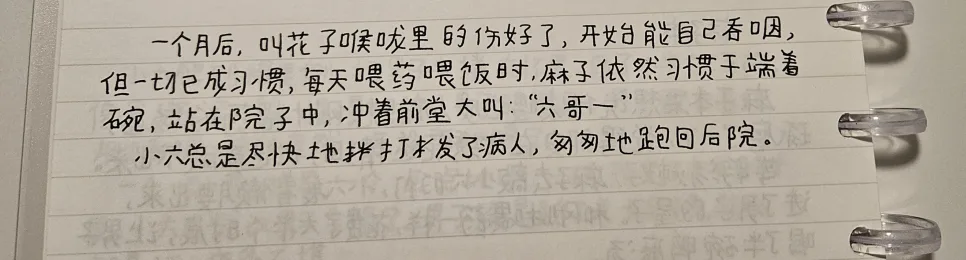 一个月后，叫花子喉咙里的伤好了，开始能自己吞咽，
但一切已成习惯，每天喂药喂饭时，麻子依然习惯于端着
碗，站在院子中，冲着前堂大叫：“六哥—”
小六总是尽快地打发了病人，匆匆地跑回后院。